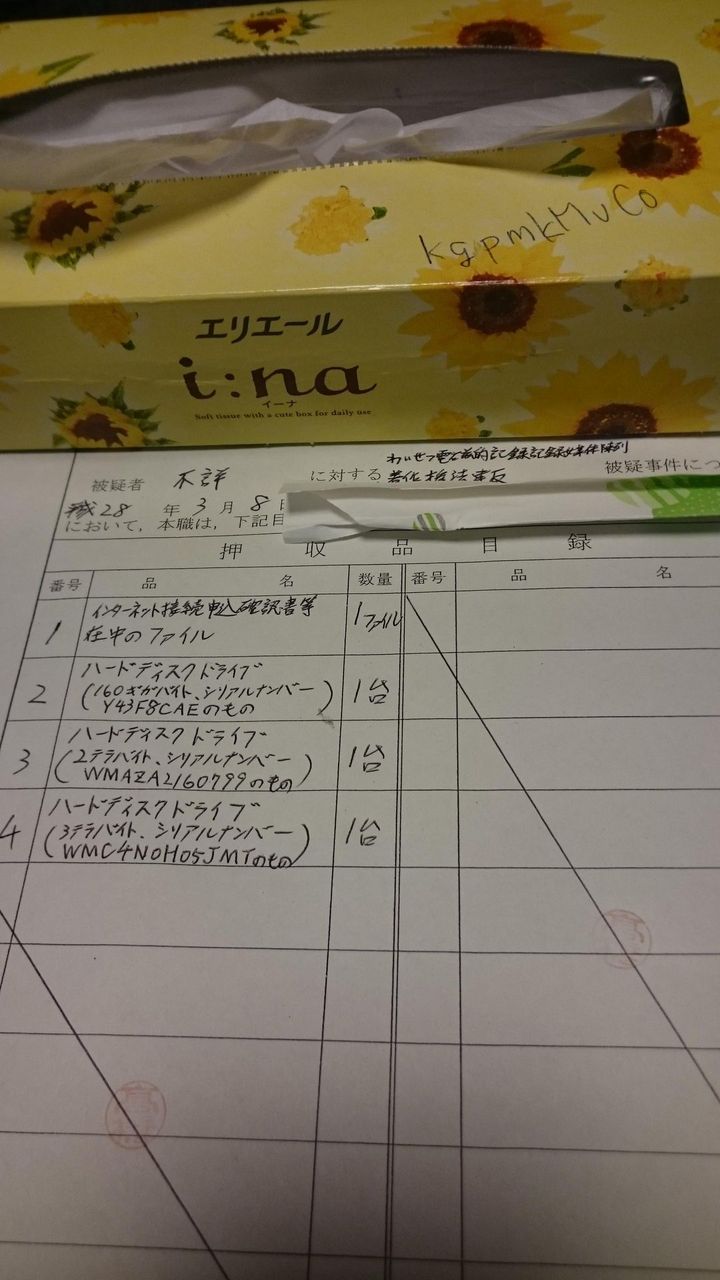 kgpmkMvCo
エリエール
i:na
イーナ
Soft tissue with a cute box for daily use
わいせつ電磁的記録記録媒体陳列
被疑者 不詳 に対する 被疑事件につ
28 年 3 月 8 日
において，本職は，下記目
押収品目録
番号 品名 数量 番号 品名
1 インターネット接続申込確認書等 1ファイル
在中のファイル
2 ハードディスクドライブ 1台
(160ギガバイト、シリアルナンバー
Y43F8CAEのもの)
3 ハードディスクドライブ 1台
(2テラバイト、シリアルナンバー
WMAZA2160799のもの)
4 ハードディスクドライブ 1台
(3テラバイト、シリアルナンバー
WMC4N0H05JMTのもの)